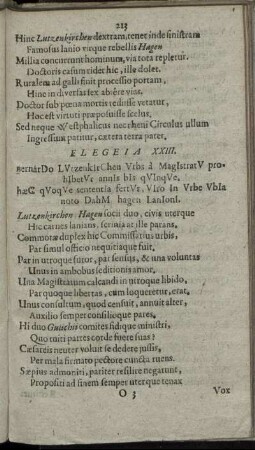 213
Hinc Lutzenkirchen dextram, tenet inde sinistram
Famosus lanio virque rebellis Hagen
Millia concurrunt hominum, via tota repletur.
Doctoris casum ridet hic, ille dolet.
Ruralem ad galli sinit processio portam,
Hinc in diversa sex abiêre vias.
Doctor sub pœna mortis rediisse vetatur,
Hoc est virtuti præposuisse scelus.
Sed neque Westphalicus nec rheni Circulus ullum
Ingressum patitur, cætera terra patet.
ELEGEIA XXIII.
BernarDo LVtzenkIrChen Vrbs à MagIstratV pro-
hIbetVr annIs bIs qVInqVe,
hæC qVoqVe sententia fertVr, VIro In Vrbe VbIa
noto DahM hagen LanIonI.
Lutzenkirchen Hagen socii duo, civis uterque
Hic carnes lanians, scrinia at ille parans,
Commotæ duplex hic Commissarius urbis,
Par simul officio nequitiaque fuit.
Par in utroque furor, par sensus, & una voluntas
Unus in ambobus seditionis amor.
Una Magistratum calcandi in utroque libido,
Par quoque libertas, cum loqueretur, erat,
Unus consultum, quod censuit, annuit alter,
Auxilio semper consilioque pares,
Hi duo Guilichii comites fidique ministri,
Quo miti partes corde fuere suas?
Cæsareis neuter voluit se dedere jussis,
Per mala firmato pectore cuncta ruens.
Sæpius admoniti, pariter resilire negarunt,
Propositi ad finem semper uterque tenax
O 3
Vox